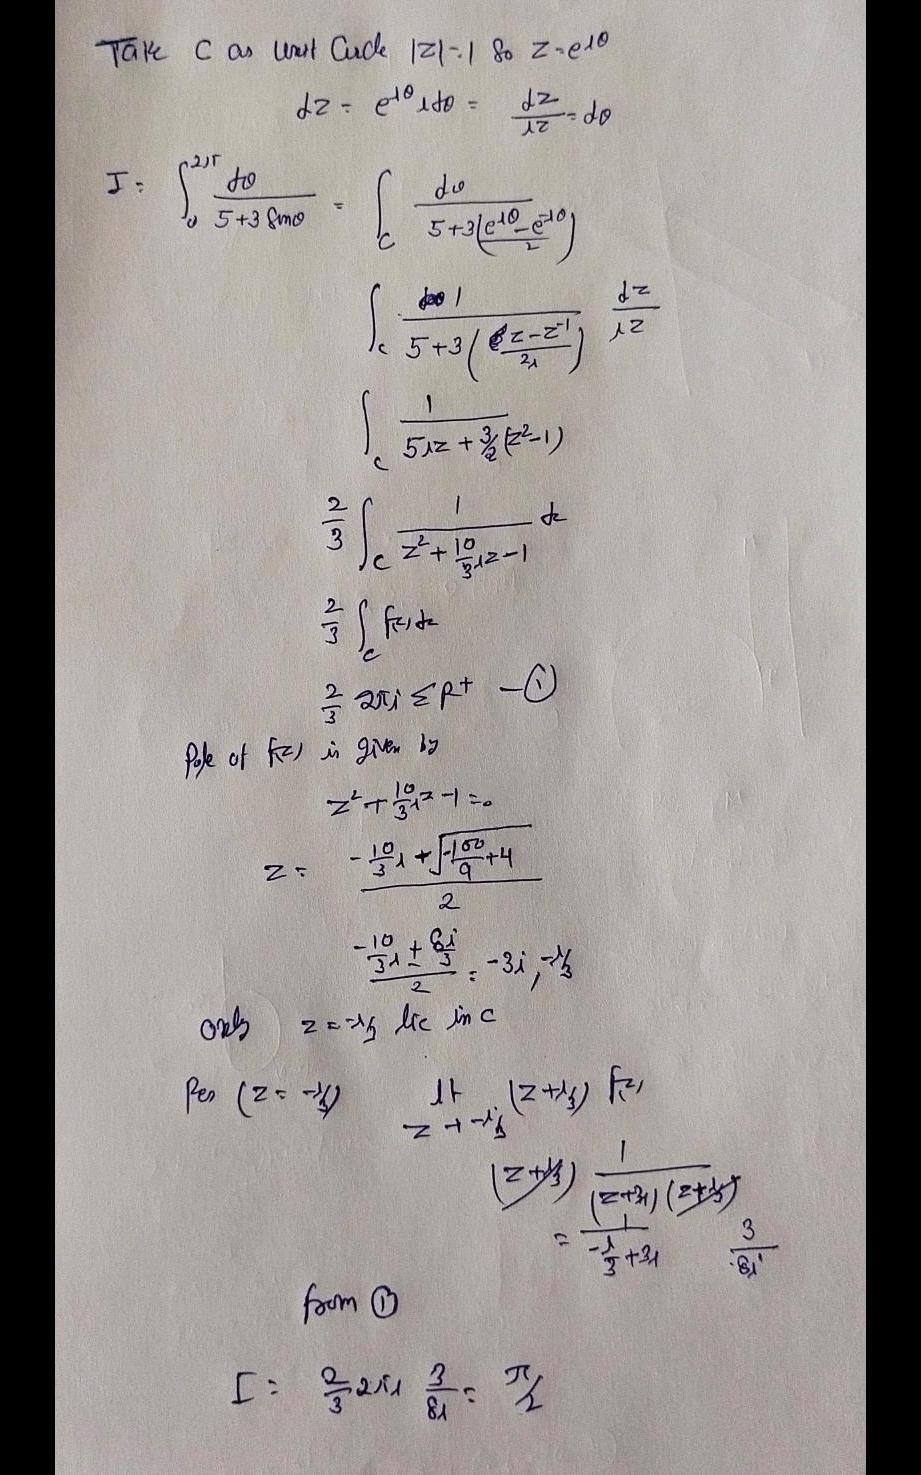 Take C as Unit Circle |z|=1 so z=e^iθ
dz = e^iθ idθ = dz/iz = dθ
I = ∫₀^2π dθ/(5+3 Sinθ) = ∫_C dθ/(5+3((e^iθ-e^-iθ)/2))
∫_C 1/(5+3((z-z^-1)/2i)) dz/iz
∫_C 1/(5iz+3/2(z²-1))
2/3 ∫_C 1/(z²+10/3 iz-1) dz
2/3 ∫_C f(z) dz
2/3 2πi ΣR⁺ —①
Pole of f(z) is given by
z²+10/3 iz-1=0
z = (-10/3 i + √(-100/9+4))/2
(-10/3 i ± 8i/3)/2 = -3i, -i/3
only z=-i/3 lie in C
Res (z=-i/3) lt z→-i/3 (z+i/3) f(z)
(z+i/3) 1/((z+3i)(z+i/3))
= 1/(-i/3+3i) 3/8i
from ①
I = 2/3 2πi 3/8i = π/2